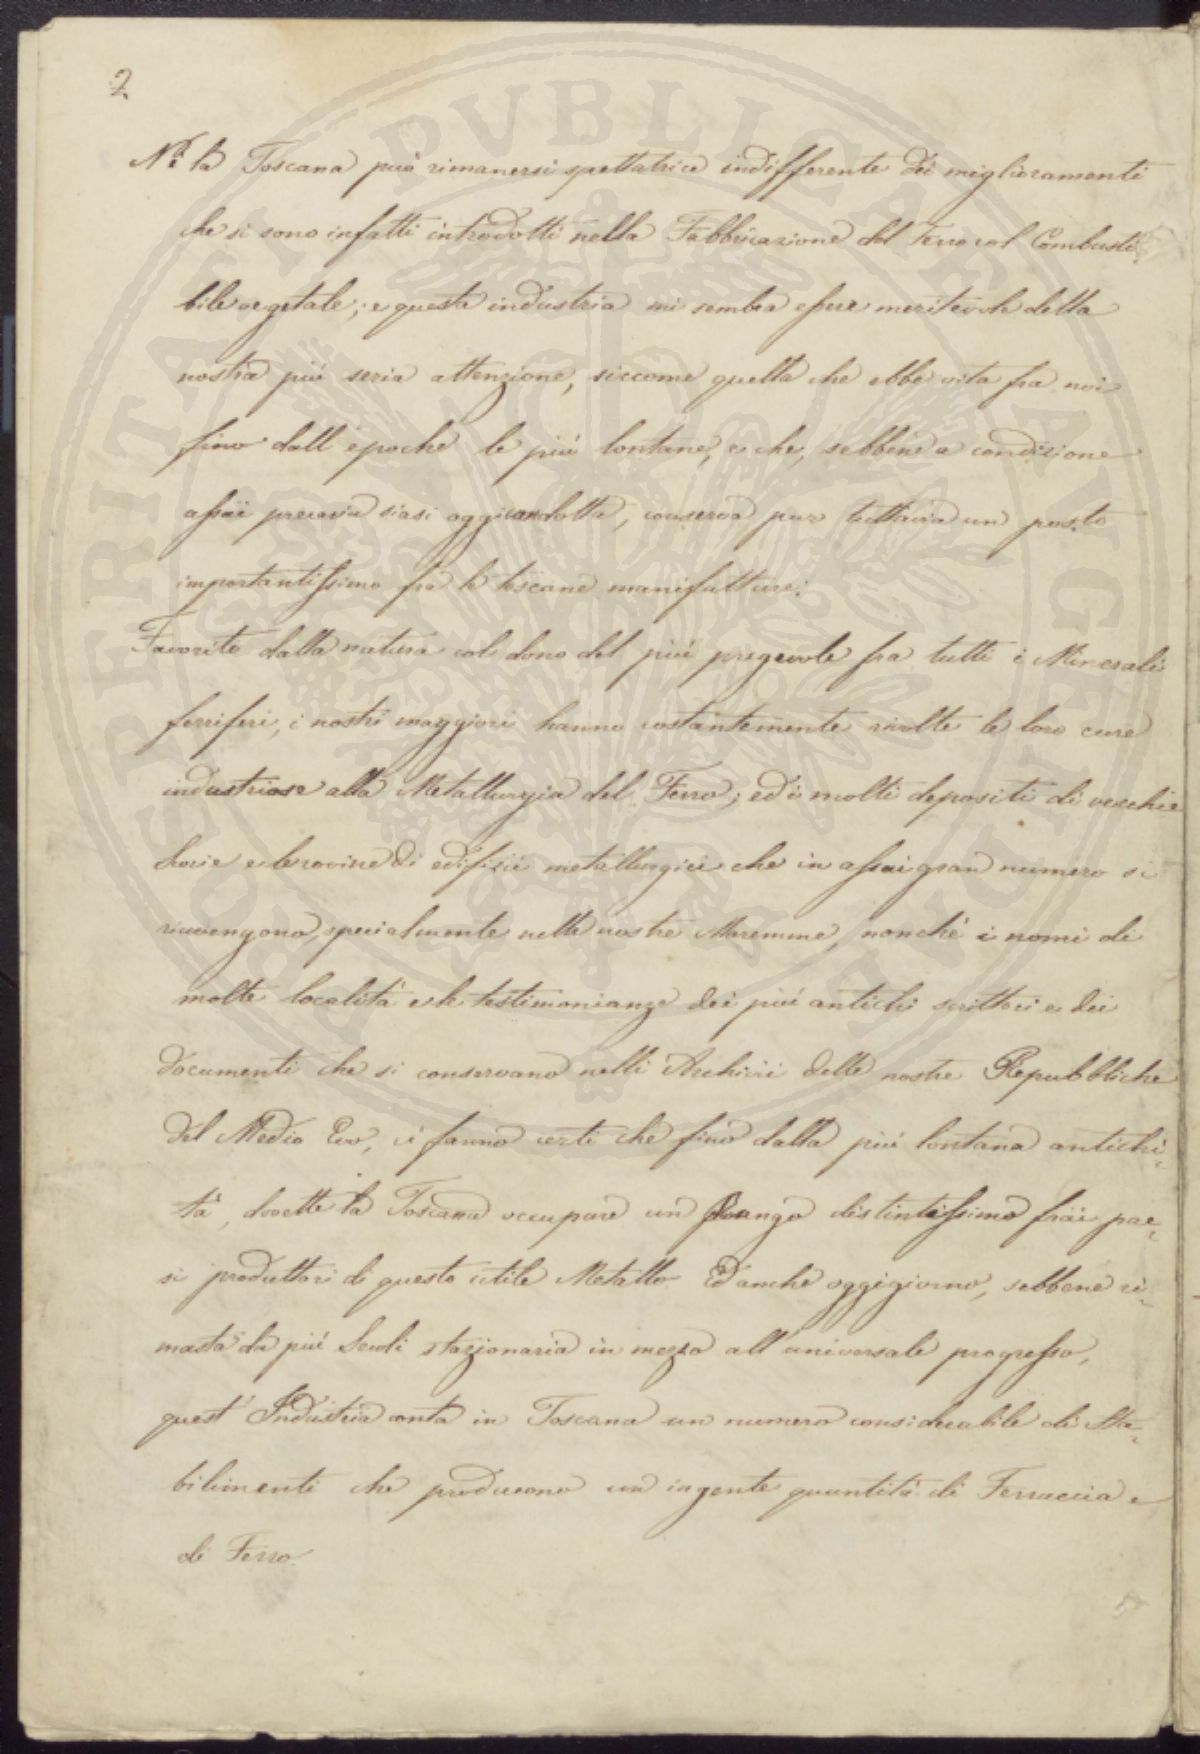 2
Nè la Toscana può rimanersi spettatrice indifferente dei miglioramenti
che si sono infatti introdotti nella Fabbricazione del Ferro col Combusti-
bile vegetale; e questa industria mi sembra essere meritevole della
nostra più seria attenzione, siccome quella che ebbe vita fra noi
fino dall'epoche le più lontane, e che, sebbene a condizione
assai precaria siasi oggi condotta, conserva pur tuttavia un posto
importantissimo fra le toscane manifatture.
Favorite dalla natura col dono del più pregevole fra tutti i Minerali
ferriferi, i nostri maggiori hanno costantemente rivolte le loro cure
industriose alla Metallurgia del Ferro; ed i molti depositi di vecchie
Scorie e le rovine di edifizii metallurgici che in assai gran numero si
rinvengono, specialmente nelle nostre Maremme, nonchè i nomi di
molte località e le testimonianze dei più antichi scrittori e dei
documenti che si conservano nelli Archivi delle nostre Repubbliche
del Medio Evo, ci fanno certi che fino dalla più lontana antichi-
tà, dovette la Toscana occupare un Rango distintissimo frai pae-
si produttori di questo utile Metallo. Ed anche oggigiorno, sebbene ri-
masta da più Secoli stazionaria in mezzo all'universale progresso,
quest'Industria conta in Toscana un numero considerabile di Sta-
bilimenti che producono un ingente quantità di Ferraccia e
di Ferro.
PROSPERITATI PVBLICAE AVGENDAE